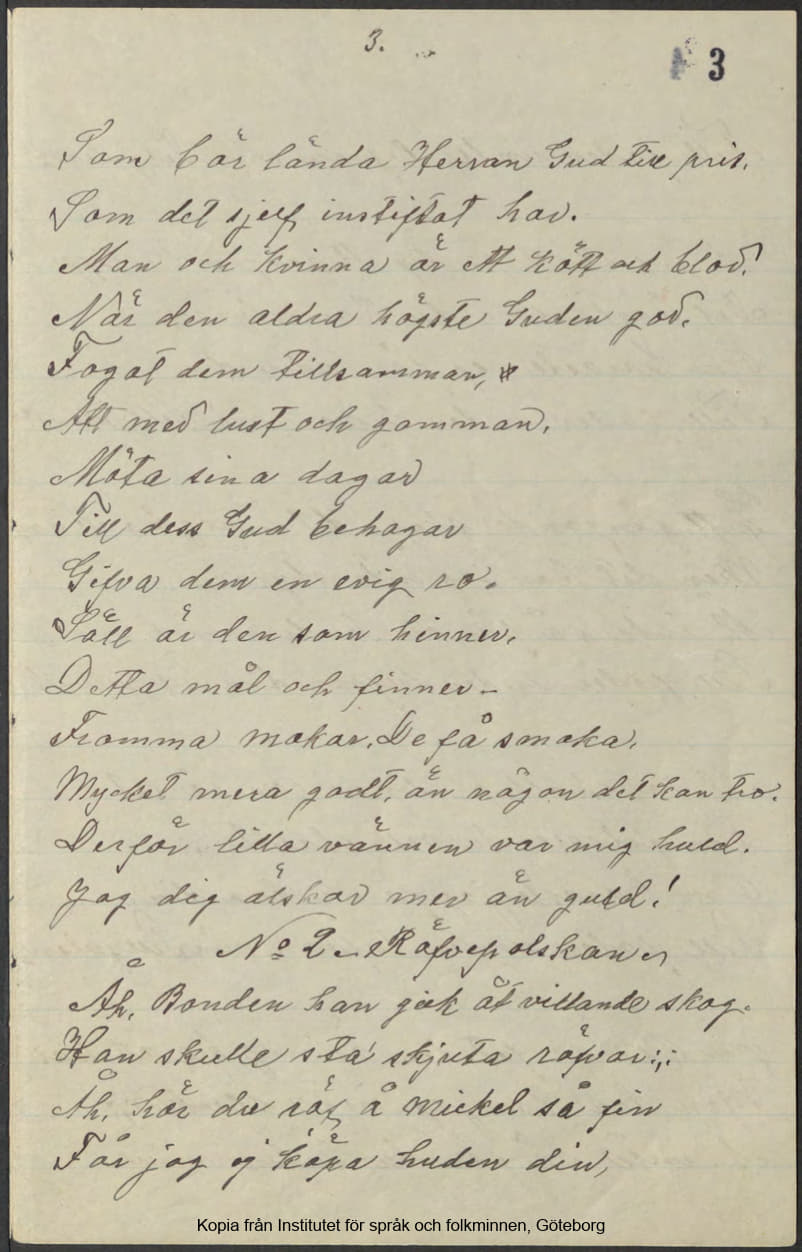 3.
3
Som bör lända Herran Gud till pris.
Som det sjelf instiftat har.
Man och kvinna är ett kött och blod.
När den aldra högste Guden god.
Fogat dem tillsamman,
Att med lust och gamman.
Möta sina dagar
Till dess Gud behagar
Gifva dem en evig ro.
Säll är den som hinner.
Detta mål och finner -
Fromma makar. De få smaka.
Mycket mera godt, än någon det kan tro.
Derför lilla vännen var mig huld.
Jag dig älskar mer än guld!
No 2. Räfvepolskan.
Åh, Bonden han gick åt villande skog.
Han skulle stå skjuta räfvar:,:
Åh, hör du räf å mickel så fin
Får jag ej köpa huden din,
Kopia från Institutet för språk och folkminnen, Göteborg